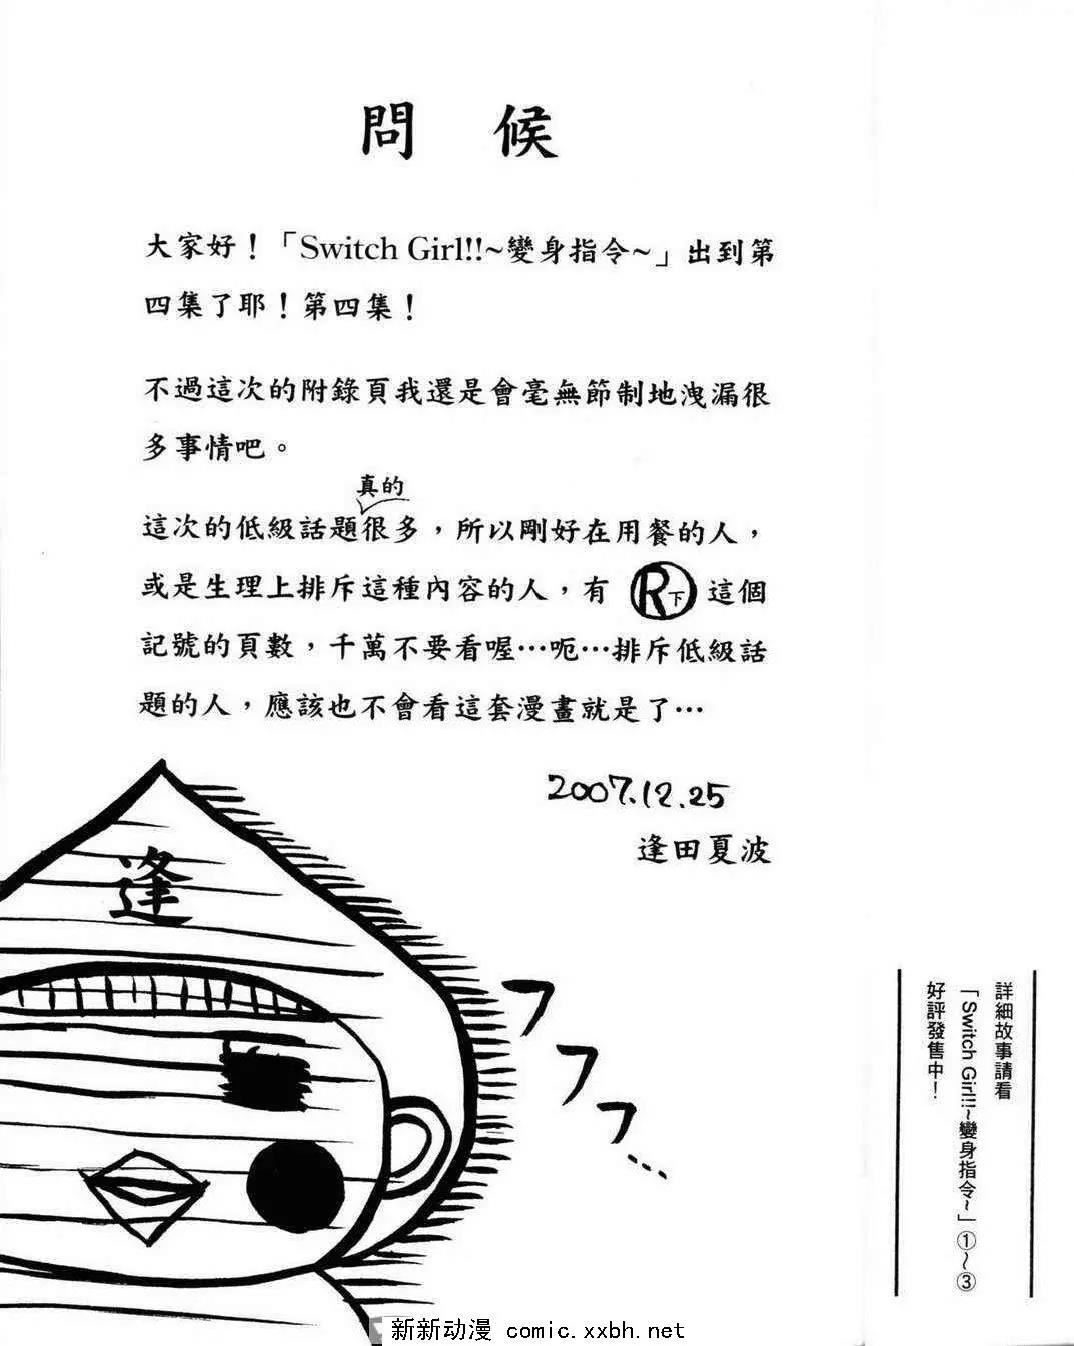 問 候
大家好！「Switch Girl!!~變身指令~」出到第
四集了耶！第四集！
不過這次的附錄頁我還是會毫無節制地洩漏很
多事情吧。
真的
這次的低級話題很多，所以剛好在用餐的人，
或是生理上排斥這種內容的人，有 R下 這個
記號的頁數，千萬不要看喔…呃…排斥低級話
題的人，應該也不會看這套漫畫就是了…
2007.12.25
逢田夏波
逢
フフフ…
詳細故事請看
「Switch Girl!!~變身指令~」①~③
好評發售中！
新新动漫 comic.xxbh.net